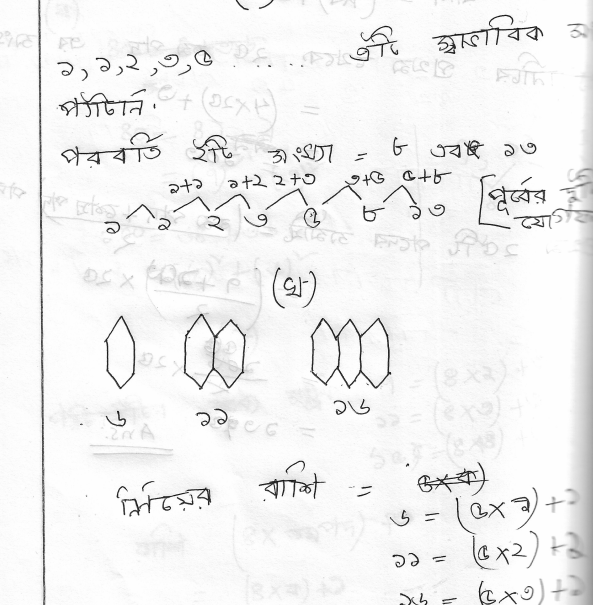 ১, ১, ২, ৩, ৫ ..... এটি স্বাভাবিক
প্যাটার্ন।
পরবর্তি ২টি সংখ্যা = ৮ এবং ১৩
১+১ ১+২ ২+৩ ৩+৫ ৫+৮
১ ১ ২ ৩ ৫ ৮ ১৩ [পূর্বের
(খ)
৬ ১১ ১৬
নির্ণেয় রাশি =
৬ = (৫×১)+১
১১ = (৫×২)+১
১৬ = (৫×৩)+১